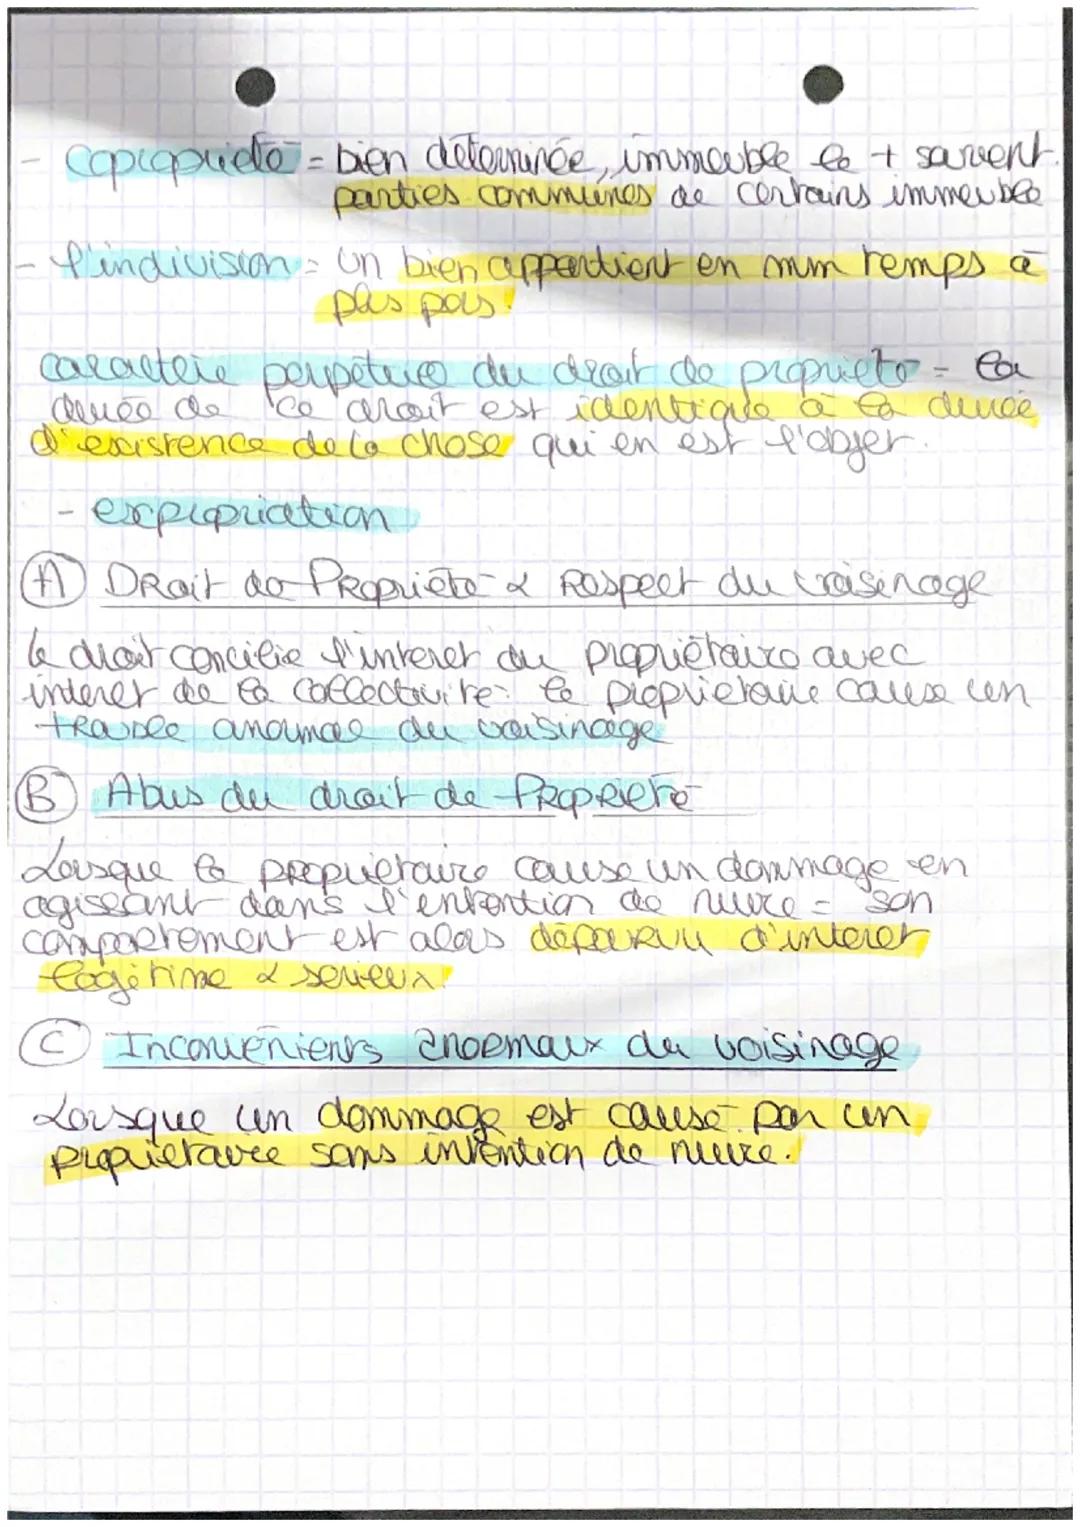 - copropriété = bien déterminée, immeuble le + souvent.
parties communes de certains immeuble
- l'indivision = un bien appartient en mm temps à
plus pers.
caractère perpétuel du droit de propriété = la
durée de ce droit est identique à la durée
d'existence de la chose qui en est l'objet.
- expropriation
A Droit de Propriété & Respect du voisinage
le droit concilie l'interet du propriétaire avec
interet de la collectivité: le propriétaire cause un
trouble anormal du voisinage
B Abus du droit de Propriété
Lorsque le propriétaire cause un dommage en
agissant dans l'intention de nuire = son
comportement est alors dépourvu d'interet
légitime & serieux.
C Inconvénients anormaux du voisinage
Lorsque un dommage est causé par un
propriétaire sans intention de nuire.